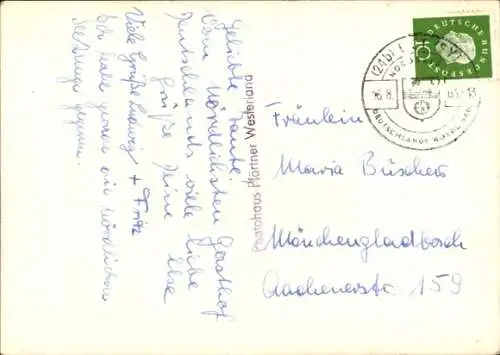 Geliebte Tante!
Vom nördlichsten Gasthof
Deutschlands viele liebe
Grüße Deine
Ilse
Viele Grüße Ludwig + Fritz
Wir haben gerade ein nördliches
gegessen.
Photohaus Pförtner Westerland
DEUTSCHE BUNDESPOST
10
(24b) LIST (SYLT)
NORDSEEBAD
16.8.
DEUTSCHLANDS NÖRDL.
Fräulein
Maria Büschers
Mönchengladbach
Aachenerstr. 159